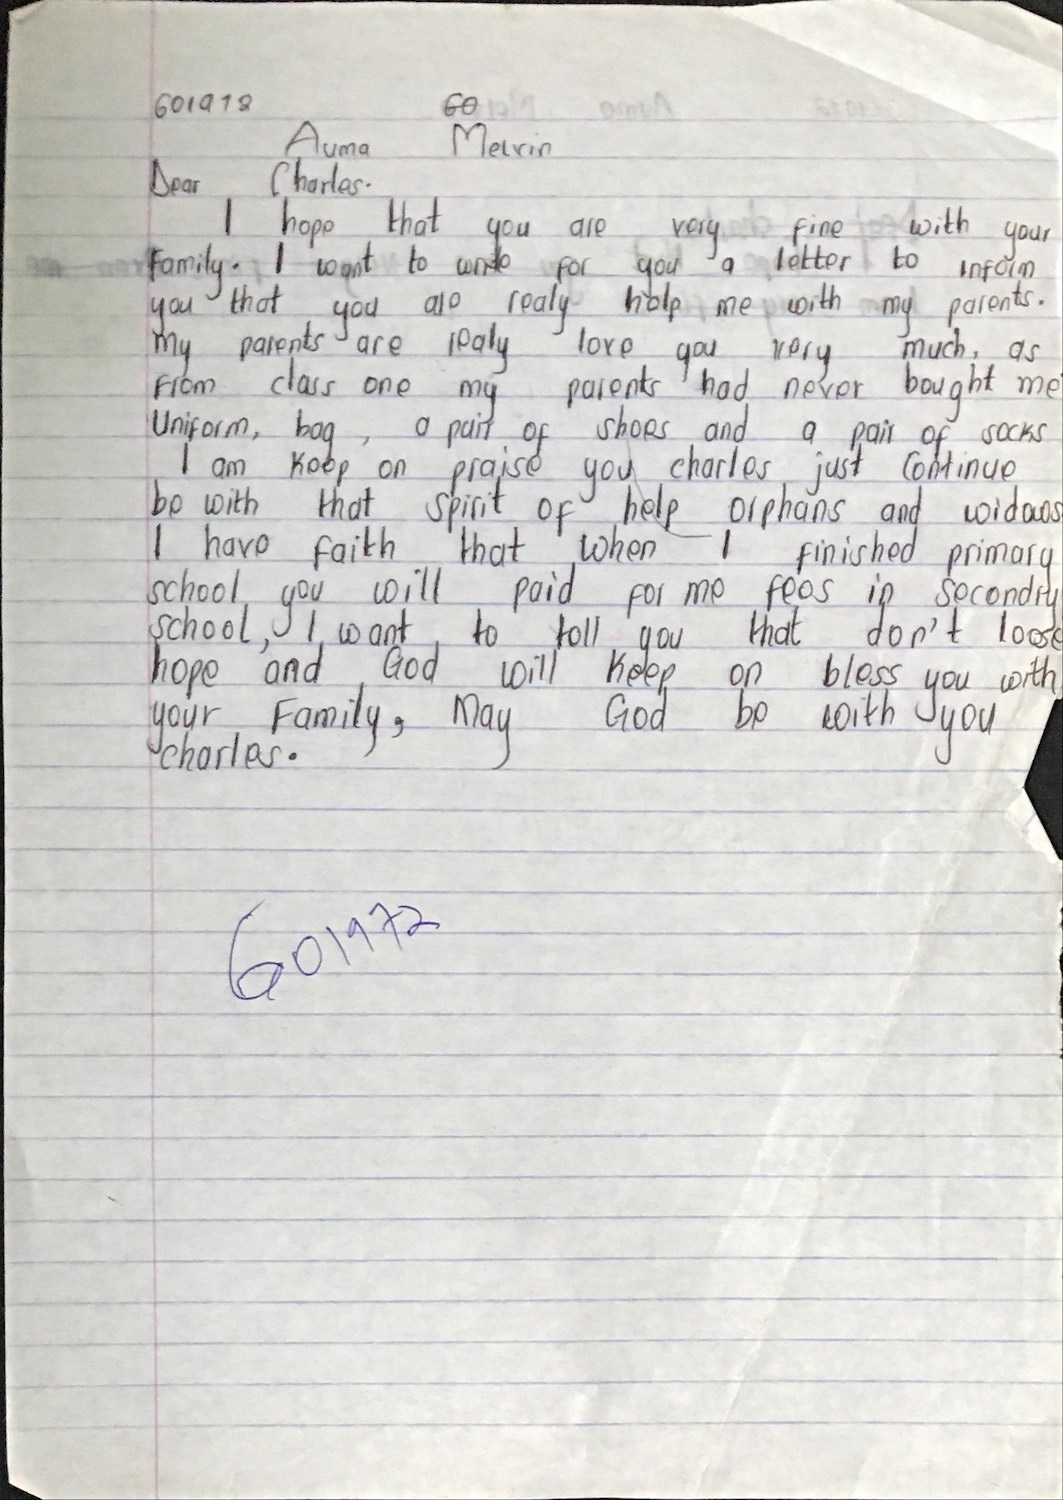 601972 60
Auma Melvin
Dear Charles.
I hope that you are very fine with your
family. I want to write for you a letter to inform
you that you are realy help me with my parents.
My parents are realy love you very much, as
from class one my parents had never bought me
Uniform, bag, a pair of shoes and a pair of socks
I am keep on praise you charles just continue
be with that spirit of help orphans and widows
I have faith that when I finished primary
school you will paid for me fees in secondry
school, I want to tell you that don't loose
hope and God will keep on bless you with
your Family, May God be with you
charles.
601972